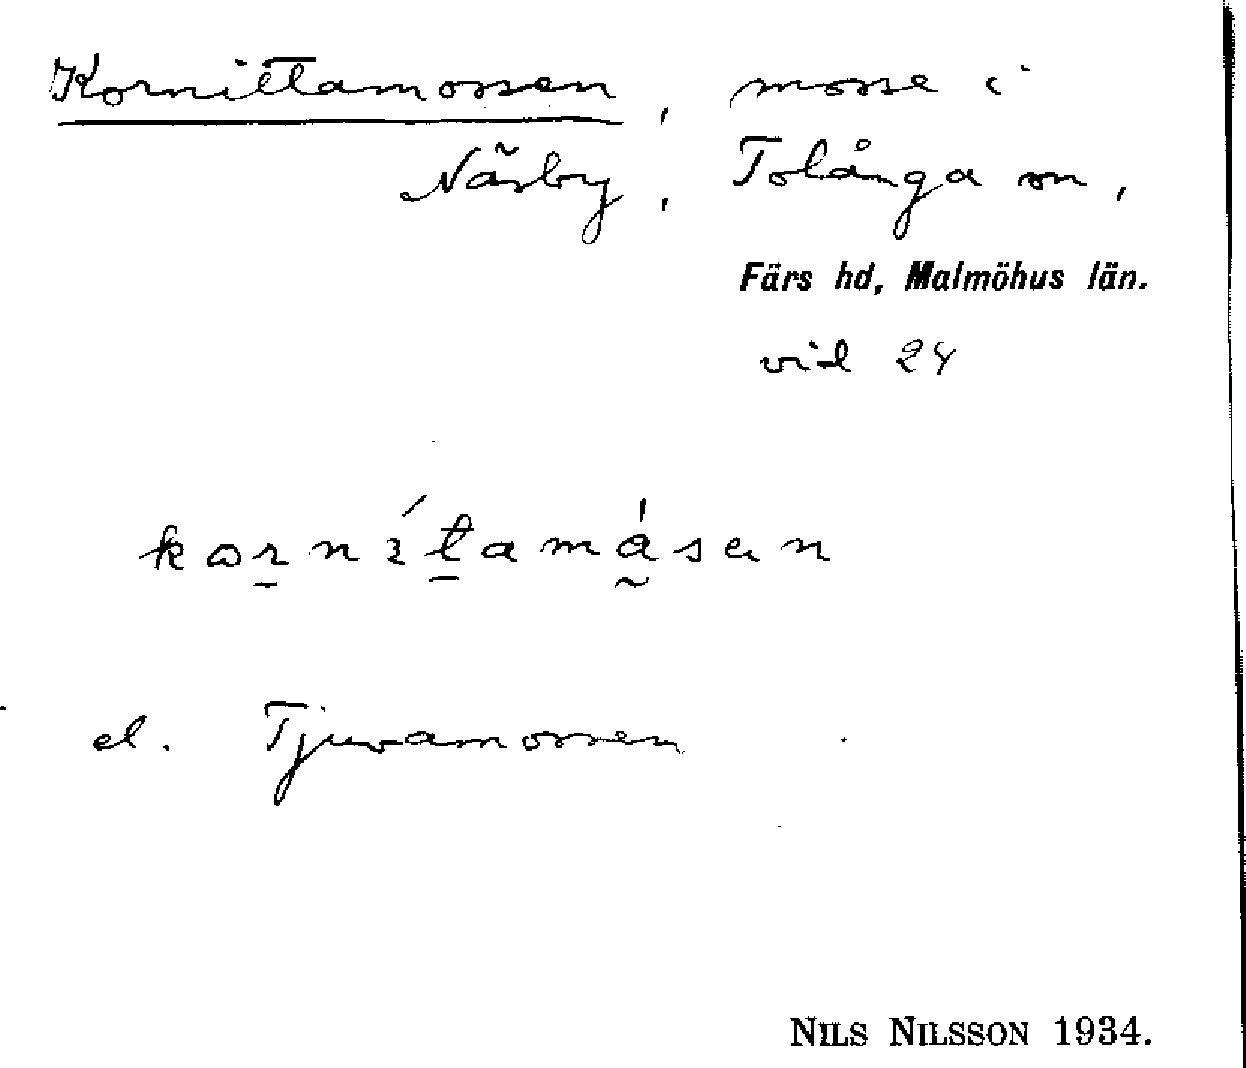 Kornittamossen, mosse i
Näsby, Tolånga sn,
Färs hd, Malmöhus län.
vid 24
kornítamásen
el. Tjuvamossen
NILS NILSSON 1934.